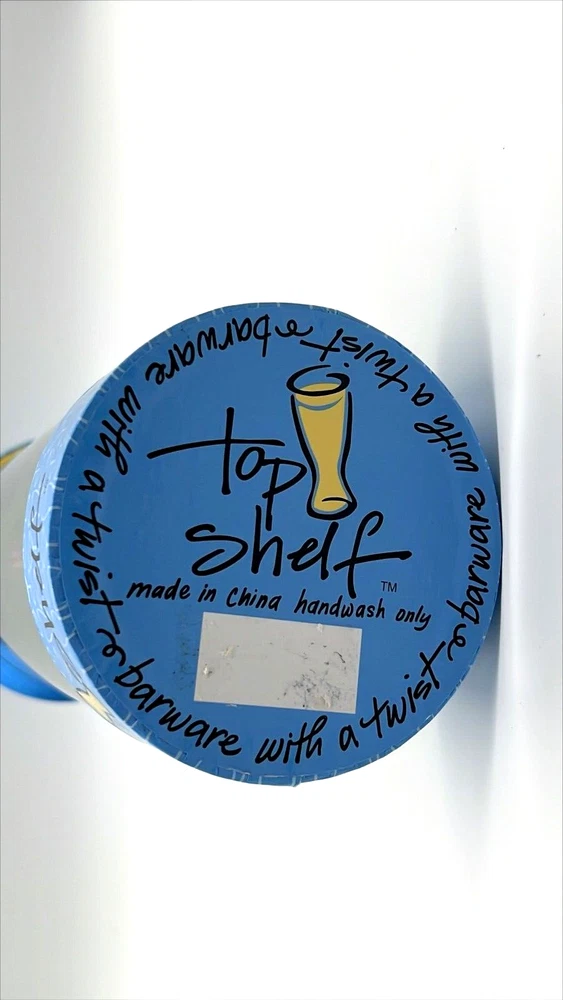 top
shelf
TM
made in China handwash only
barware with a twist
barware with a twist
barware with a twist